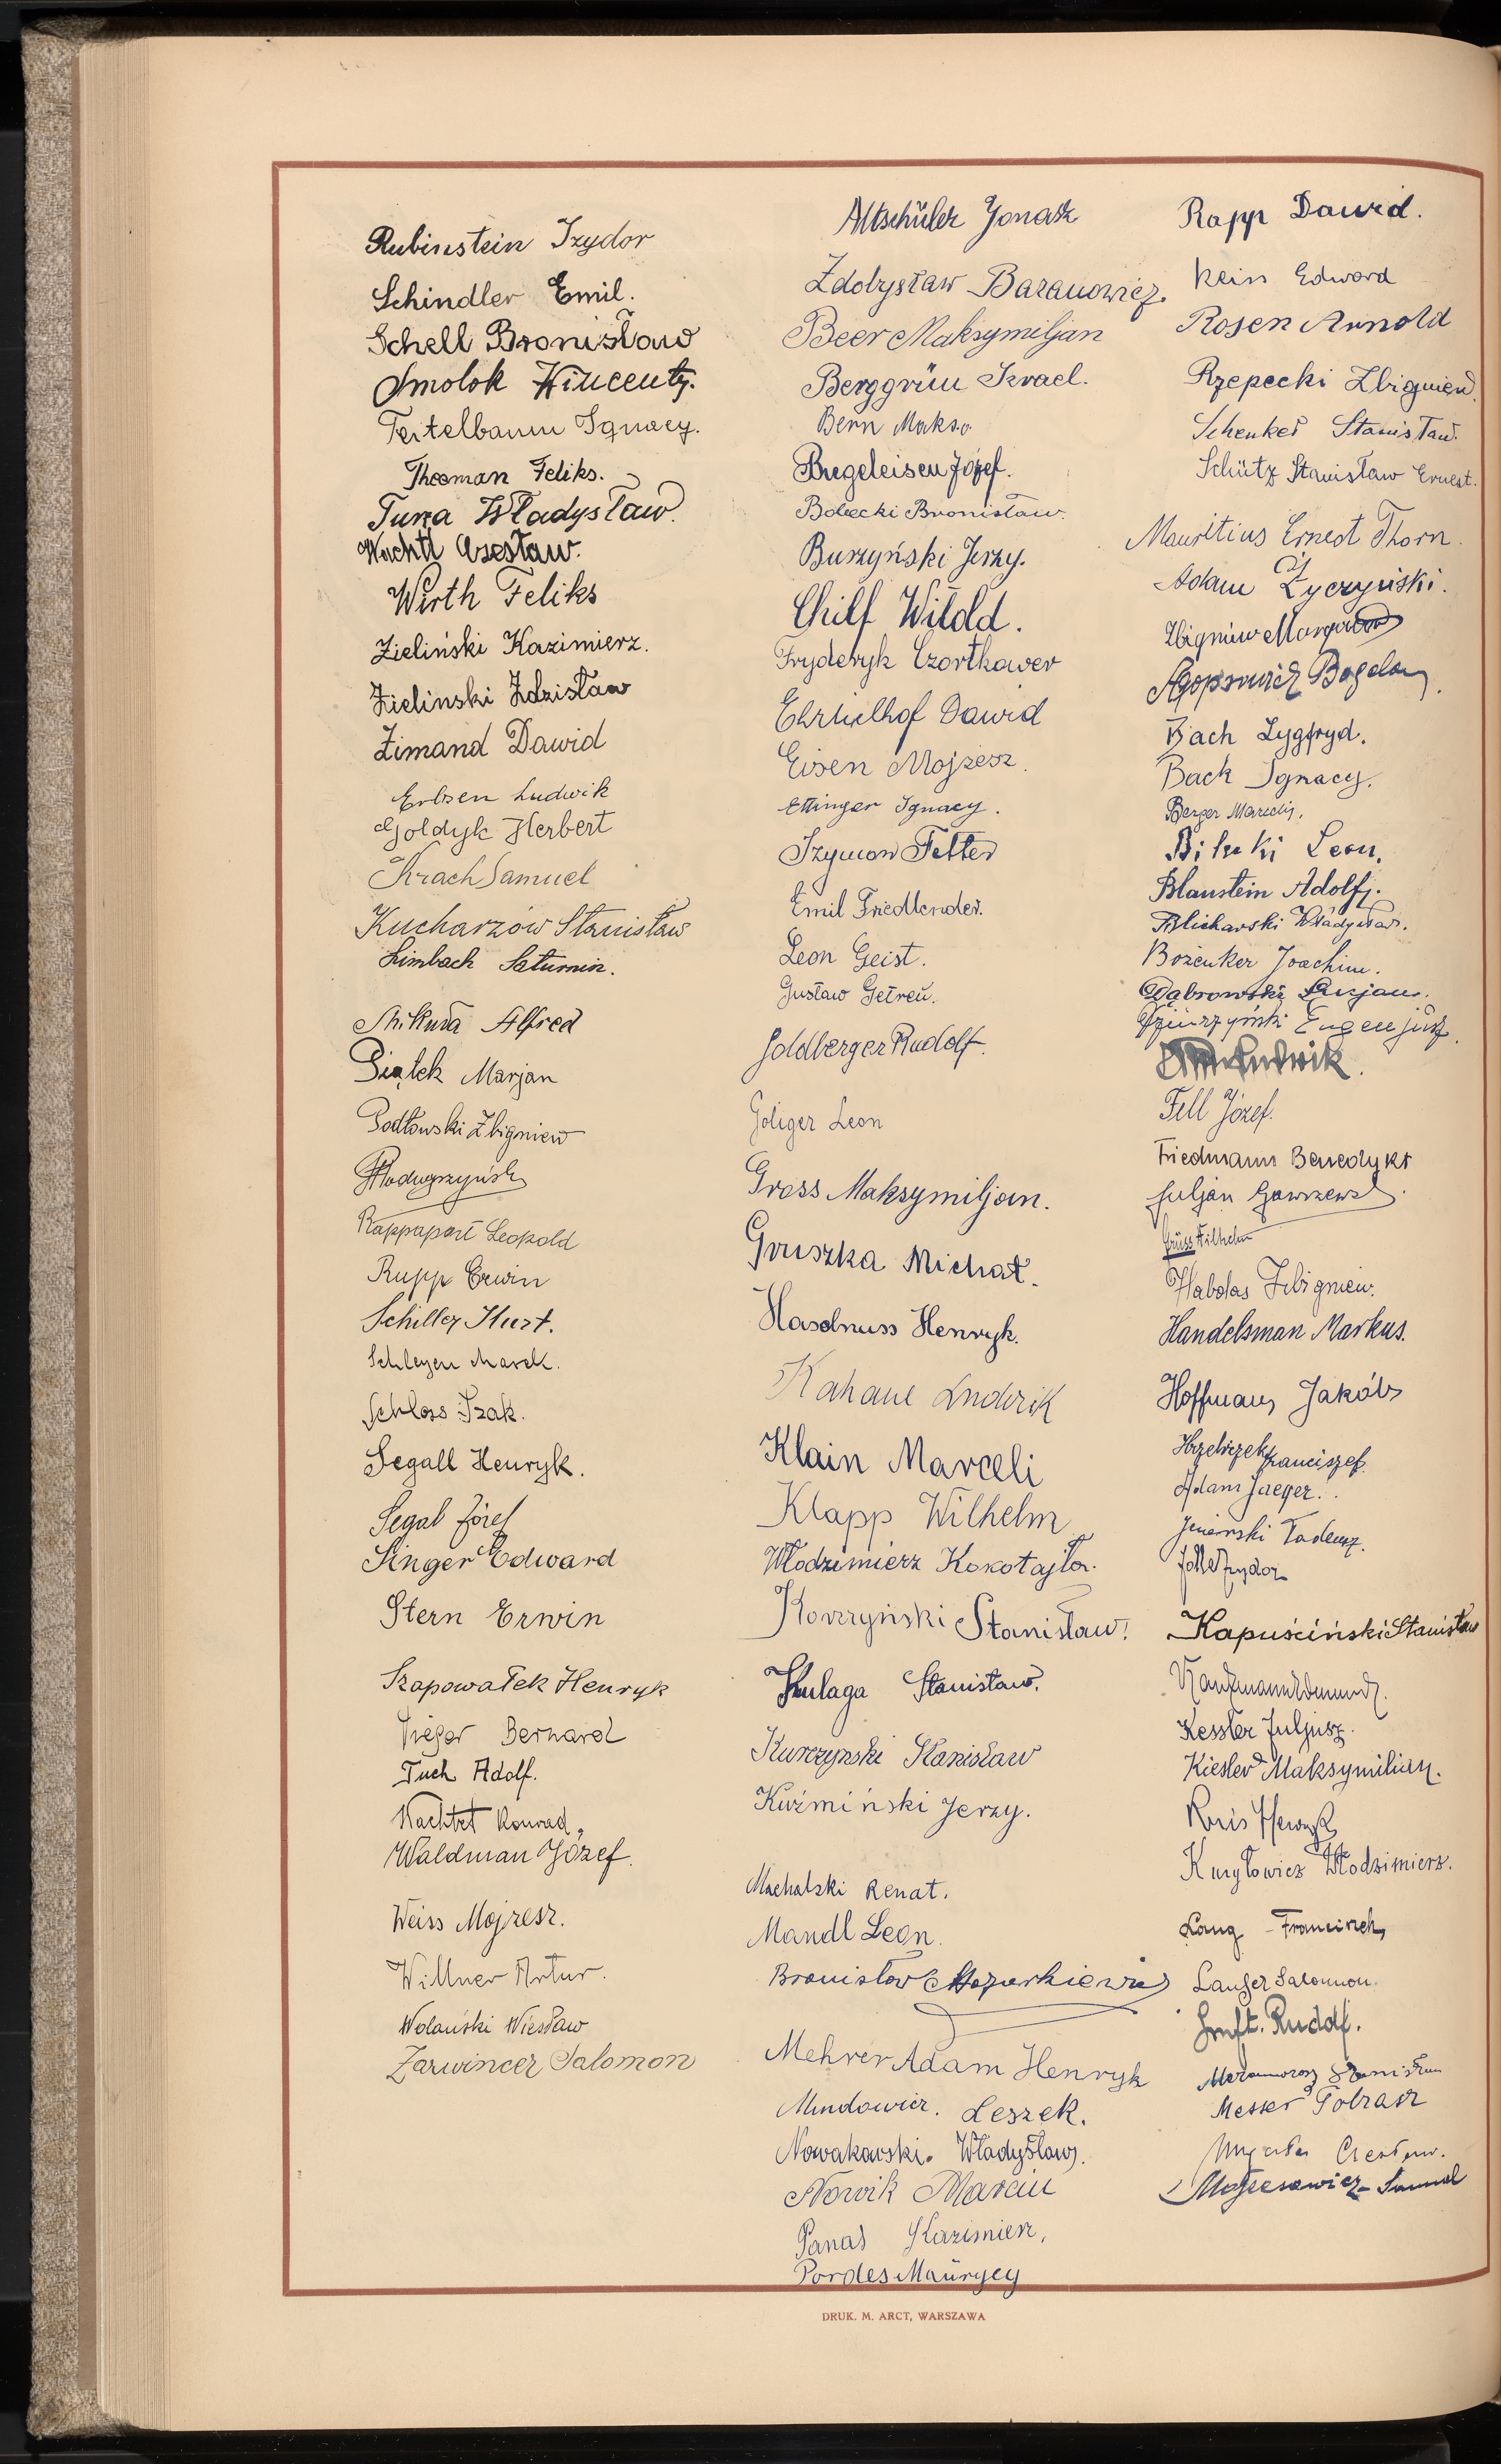 Rubinstein Izydor
Schindler Emil.
Schell Bronisław
Smolok Wincenty.
Teitelbaum Ignacy.
Thooman Feliks.
Turza Władysław.
Wachtl Czesław.
Wirth Feliks
Zieliński Kazimierz.
Zielinski Zdzisław
Zimand Dawid
Erbsen Ludwik
Goldyk Herbert
Krach Samuel
Kucharzów Stanisław
Limbach Saturnin.
Mikuła Alfred
Piątek Marjan
Podłowski Zbigniew
Rappaport Leopold
Rupp Erwin
Schiller Kurt.
Schleyen Marek.
Schloss Izak.
Segall Henryk.
Segal Józef
Singer Edward
Stern Erwin
Szapowałek Henryk
Treger Bernard
Tuch Adolf.
Wachtel Konrad,
Waldman Józef.
Weiss Mojzesz.
Willner Artur.
Wolański Wiesław
Zarwincer Salomon
Altschüler Jonasz
Zdobysław Baranowicz.
Beer Maksymiljan
Berggrün Izrael.
Bern Maks.
Bregeleisen Józef.
Bobecki Bronisław.
Burzyński Jerzy.
Chilf Witold.
Fryderyk Czortkower
Ehrlichof Dawid
Eisen Mojżesz.
Ettinger Ignacy.
Szymon Fetter
Emil Friedlender.
Leon Geist.
Gustaw Getreu.
Goldberger Rudolf.
Goliger Leon
Gross Maksymiljan.
Gruszka Michał.
Haselnuss Henryk.
Kahane Ludwik
Klain Marceli
Klapp Wilhelm
Włodzimierz Kokotajło.
Korczyński Stanisław.
Kulaga Stanisław.
Kurczynski Stanisław
Kuźmiński Jerzy.
Machalski Renat.
Mandl Leon.
Bronisław Mazurkiewicz
Mehrer Adam Henryk
Mindowicz. Leszek.
Nowakowski. Władysław.
Nowik Marcin
Panas Kazimierz.
Pordes Maurycy
Rapp Dawid.
Rein Edward
Rosen Arnold
Rzepecki Zbigniew.
Schenker Stanisław.
Schütz Stanisław Ernest.
Mauritius Ernest Thorn.
Adam Życzyński.
Zbigniew
Agopsowicz Bogdan.
Bach Zygfryd.
Back Ignacy.
Berger Marceli,
Leon,
Blaustein Adolf.
Blicharski Władysław.
Bożenker Joachim.
Dąbrowski Lucjan.
Dziurzyński Eugenjusz.
Fell Józef.
Friedmann Benedykt
Juljan
Grüss Wilhelm
Habdas Zbigniew.
Handelsman Markus.
Hoffman, Jakób
Franciszek.
Adam Jaeger.
Jezierski Tadeusz.
Izydor
Kapuściński Stanisław
Kaufmann Edmund.
Kessler Juljusz.
Kiesler Maksymilian.
Kris Henryk
Kuryłowicz Włodzimierz.
Lang Franciszek,
Langer Salomon.
Luft. Rudolf.
Stanisław
Messer Tobiasz
Czesław.
Mojżeszowicz Samuel
DRUK. M. ARCT, WARSZAWA